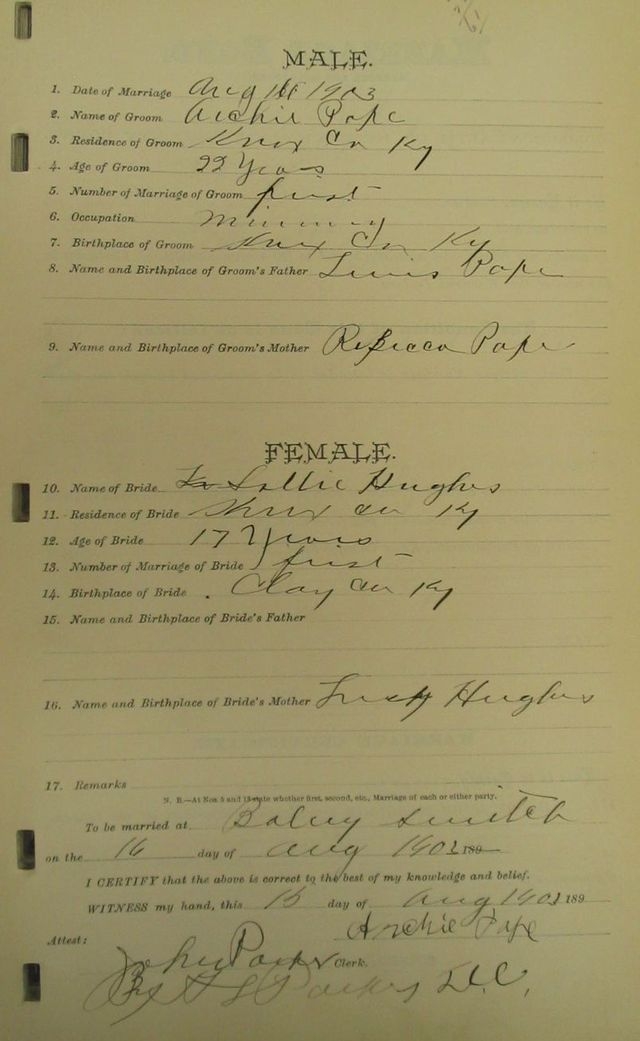 MALE.
1. Date of Marriage Aug 1903
2. Name of Groom Archie Pope
3. Residence of Groom Knox Co Ky
4. Age of Groom 22 Years
5. Number of Marriage of Groom first
6. Occupation
7. Birthplace of Groom Knox Co Ky
8. Name and Birthplace of Groom's Father Lewis Pope
9. Name and Birthplace of Groom's Mother Rebecca Pope
FEMALE.
10. Name of Bride Sallie Hughes
11. Residence of Bride Knox Co Ky
12. Age of Bride 17 Years
13. Number of Marriage of Bride first
14. Birthplace of Bride Clay Co Ky
15. Name and Birthplace of Bride's Father
16. Name and Birthplace of Bride's Mother Hughes
17. Remarks
N. B.—At Nos. 5 and 13 state whether first, second, etc., Marriage of each or either party.
To be married at
on the 16 day of Aug 1903 189
I CERTIFY that the above is correct to the best of my knowledge and belief.
WITNESS my hand, this 15 day of Aug 1903 189
Archie Pope
Attest:
John Parker Clerk.
By Parker D.C.